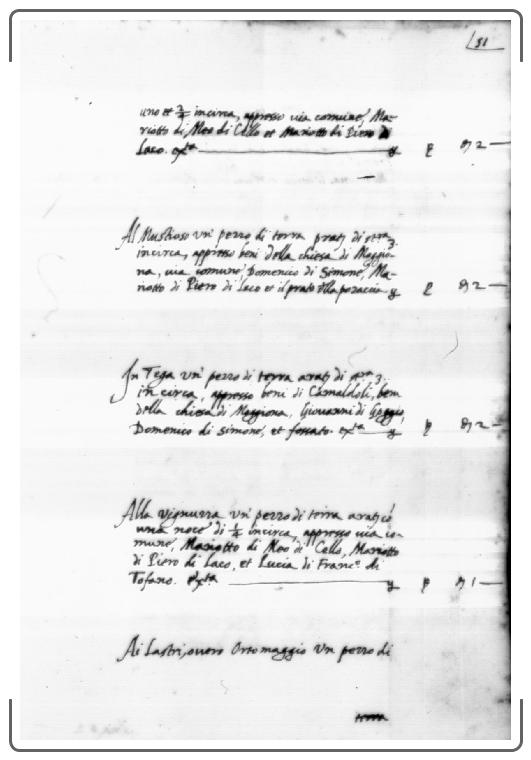 51
uno et 3/4 incirca, appresso via comune, Ma-
riotto di Meo di Cello et Mariotto di Piero di
Laco. exta y p s 2
Al Muschioso un' pezzo di terra prati di stra 3.
incirca, appresso beni della chiesa di Moggio-
na, via comune, Domenico di Simone, Ma-
riotto di Piero di Laco et il prato della pozaccia y p s 2
In Tega un' pezzo di terra arati di stra 3.
in circa, appresso beni di Camaldoli, beni
della chiesa di Moggiona, Giovanni di Goggio,
Domenico di Simone, et fossato. exta y p s 2
Alla vignuzza un' pezzo di terra arati cō
una noce di 1/4 incirca, appresso via co-
mune, Mariotto di Meo di Cello, Mariotto
di Piero di Laco, et Lucia di Franc.o di
Tofano. exta y p s 1
Ai Lastri, overo Ortomaggio un pezzo di
terra